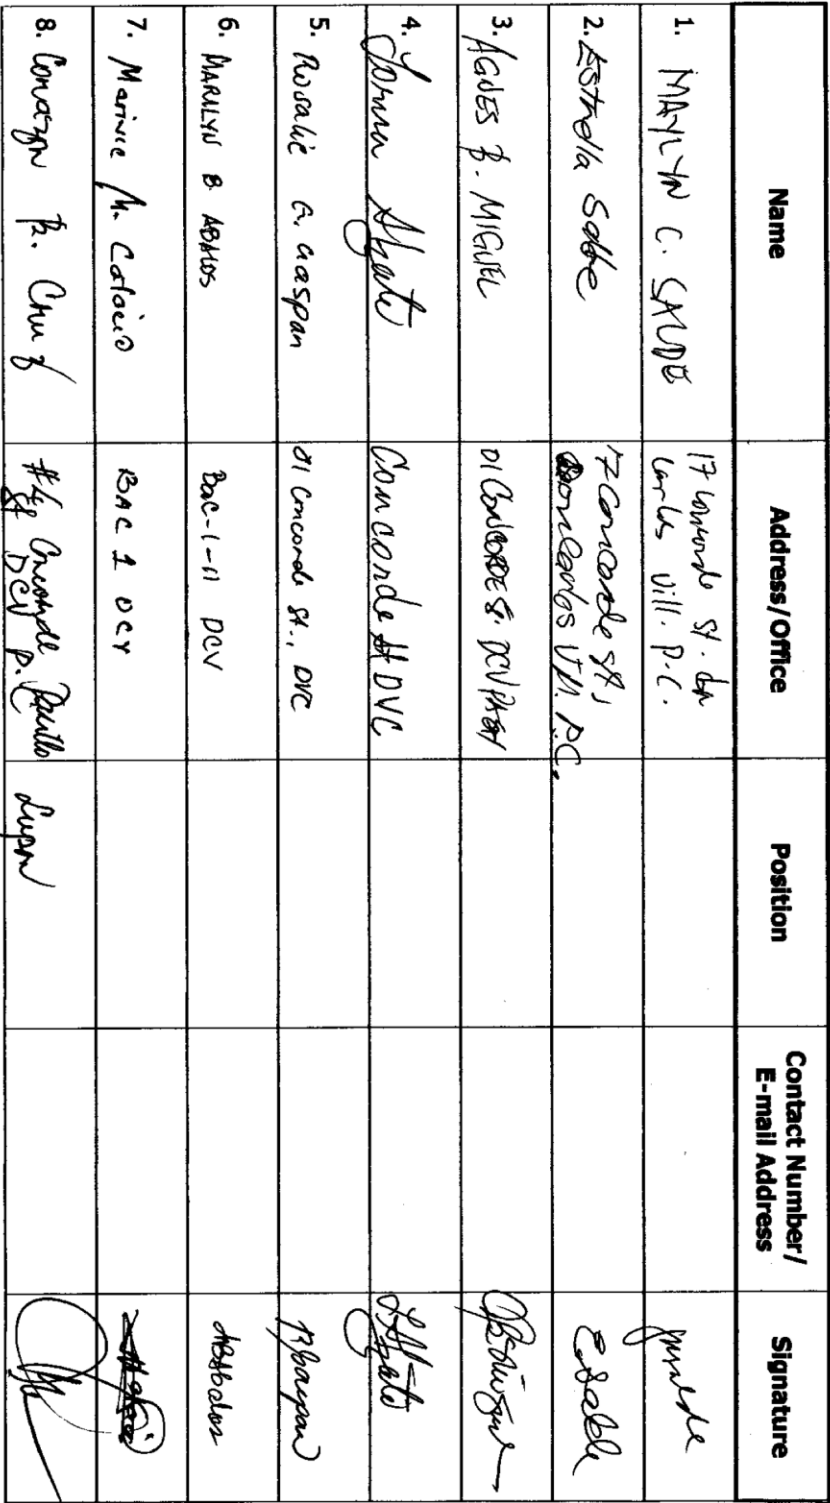 Name Address/Office Position Contact Number/ E-mail Address Signature
1. MAYLYN C. SALDE 17 Concorde St. Don
Carlos Vill. P.C.
2. Estrella Sable 7 Concorde St,
Don Carlos Vill. P.C. ESable
3. AGNES B. MIGUEL 01 CONCORDE St. DCV PASAY
4. Lorna Agato Concorde St DVC
5. Rosalie G. Gaspan 01 Concorde St., DVC
6. MARILYN B. ABALOS Bac-1-11 DCV
7. Marinie M. BAC 1 DCV
8. Corazon R. #4 Concorde
St DCV P. Lupon